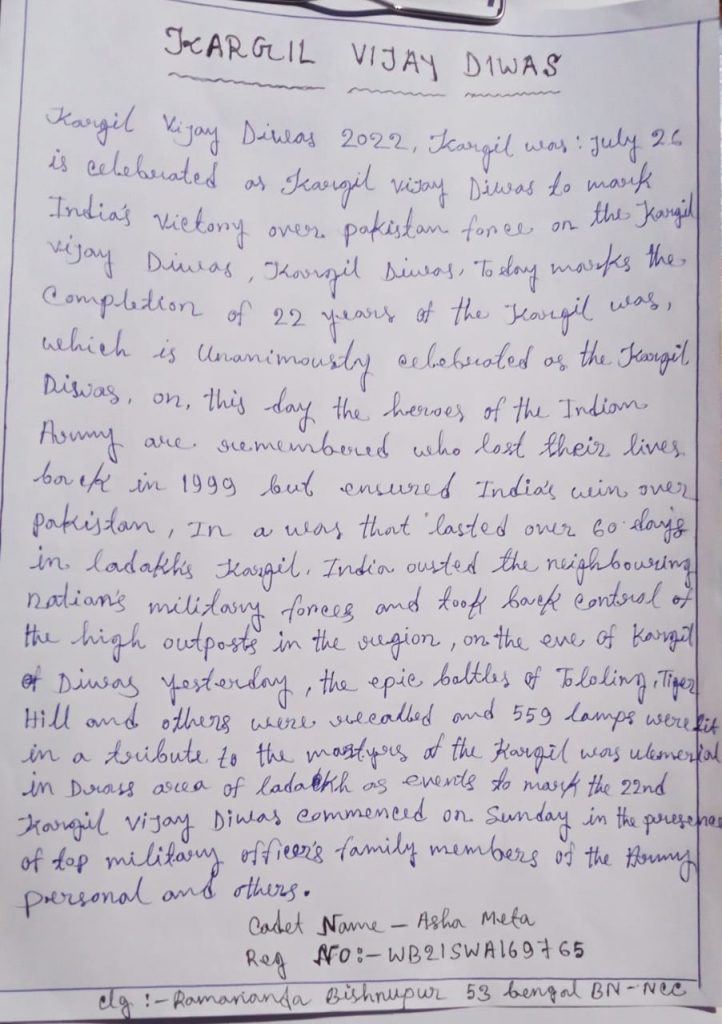 KARGIL VIJAY DIWAS
Kargil Vijay Diwas 2022, Kargil was: July 26
is celebrated as Kargil vijay Diwas to mark
India's victory over pakistan force on the Kargil
vijay Diwas, Kargil Diwas, Today marks the
Completion of 22 years of the Kargil was,
which is Unanimously celebrated as the Kargil
Diswas, on, this day the heroes of the Indian
Army are remembered who lost their lives
back in 1999 but ensured India's wein over
pakistan, In a was that lasted over 60 days
in ladakhs Kargil. India ousted the neighbouring
natian's military forces and took back control of
the high outposts in the region, on the eve of Kargil
of Diwas yesterday, the epic battles of Tololing, Tiger
Hill and others were recalled and 559 lamps were lit
in a tribute to the martyrs at the Kargil was ulemerial
in Drass area of ladakh as events to mark the 22nd
Kargil vijay Diwas commenced on Sunday in the presence
of top military officer's family members of the Army
personal and others.
Cadet Name - Asha Meta
Reg NO:- WB21SWA169765
clg :- Ramananda Bishnupur 53 bengal BN - NCC